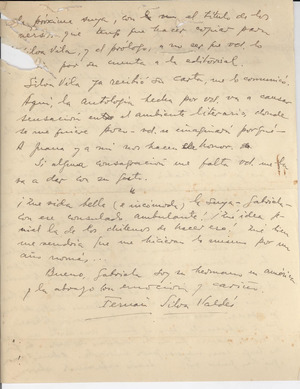 próxima suya, con el título de los
versos que tengo que hacer copiar para
Silva Vila, y el prólogo, a no ser que vd. lo
por su cuenta a la editorial.
Silva Vila ya recibió su carta, me lo comunicó.
Aquí la antología hecha por vd. va a causar
sensación en el ambiente literario, donde
se me quiere poco. vd. se imaginará porqué.
A Juana y a mí nos hace honor.
Si alguna consagración me falta vd. me la
va a dar con su gesto.
¡Qué vida bella (e incómoda) la suya Gabriela
con ese consulado ambulante! ¡Qué idea
la de los chilenos de hacer eso! Qué bien
me vendría que me hicieran lo mismo por un
año nomás...
Bueno, Gabriela soy su hermano en américa
y la abrazo con emoción y cariño.
Fernán Silva Valdés